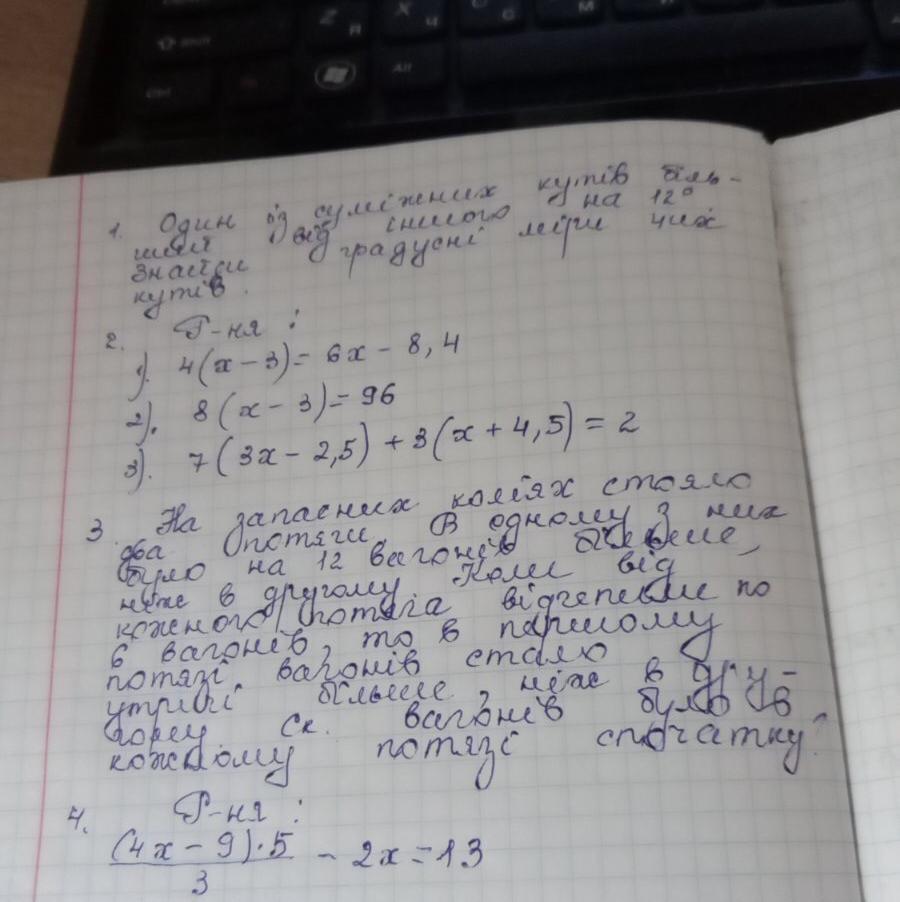 1. Один із суміжних кутів біль-
ший від іншого на 12°
Знайти градусні міри цих
кутів.
2. Р-ня :
1). 4(x-3)= 6x - 8,4
2). 8(x-3)=96
3). 7(3x-2,5)+3(x+4,5)=2
3. На запасних коліях стояло
два потяги. В одному з них
було на 12 вагонів більше,
ніж в другому Коли від
кожного потяга відчепили по
6 вагонів, то в першому
потязі вагонів стало
утричі більше, ніж в дру-
гому Ск. вагонів було в
кожному потязі спочатку?
4. Р-ня :
(4x-9)·5
/3 - 2x=13
Shift
Z Я
X Ч
C С
М
И
Ctrl
Alt